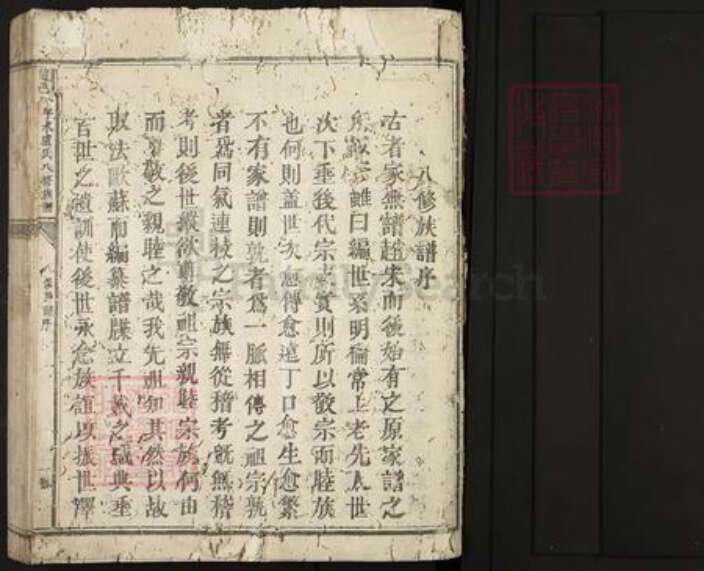 八修族譜序
古者家無譜趙宋而後始有之原家譜之
所 雖曰編世系明倫常上老先人世
次下垂後代宗 實則所以敬宗而睦族
也何則蓋世次愈傳愈遠丁口愈生愈繁
不有家譜則孰者為一脈相傳之祖宗孰
者為同氣連枝之宗族無從稽考既無稽
考則後世縱欲尊敬祖宗親睦宗族何由
而尊敬之親睦之哉我先祖知其然以故
取法歐蘇而編纂譜牒立千載之盛典垂
百世之遺訓使後世永 族誼以振世澤
盧氏八修族譜
譜序
FamilySearch